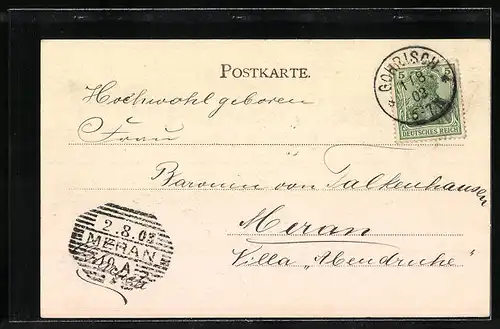 POSTKARTE.
GOHRISCH
1 8
03
5-7N
5 5
DEUTSCHES REICH
Hochwohlgeboren
Frau
Baronin von Falkenhausen
Meran
Villa „Abendruhe"
2.8.03
MERAN
9.A